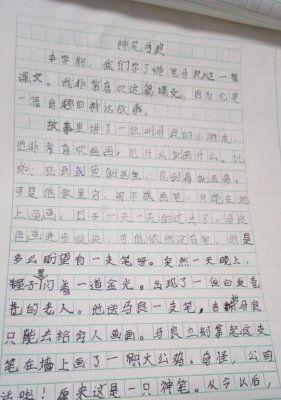 神笔马良
本学期，我们学了神笔马良这一篇
课文。我非常喜欢这篇课文，因为它是
一篇有趣的神话故事。
故事里讲了一位叫马良的小朋友，
他非常喜欢画画，见什么就画什么。比
如：见到就画，见到鸟就画鸟。
可是他家里穷，买不成画笔，只能在地
上画画。日子一天一天的过去了，马良
画画进步很快，可他依然没有笔。他是
多么盼望有一支笔呀。突然一天晚上，
屋子里闪着一道金光。出现了一位白发苍
苍的老人。他送马良一支笔，告诉马良
只能去给穷人画画。马良立刻拿起这支
笔在墙上画了一只大公鸡。奇怪，公鸡
活啦！原来这是一只神笔。从今以后，